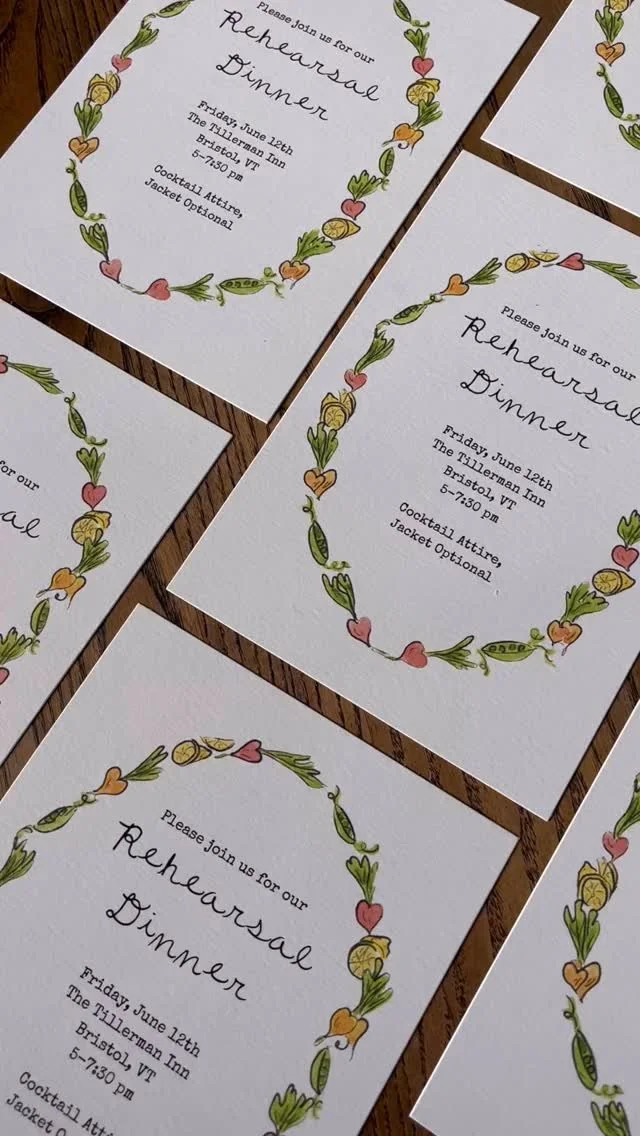 Please join us for our
Rehearsal
Dinner
Friday, June 12th
The Tillerman Inn
Bristol, VT
5-7:30 pm
Cocktail Attire,
Jacket Optional
Please join us for our
Rehearsal
Dinner
Friday, June 12th
The Tillerman Inn
Bristol, VT
5-7:30 pm
Cocktail Attire,
Jacket Optional
for our
Please join us for our
Rehearsal
Dinner
Friday, June 12th
The Tillerman Inn
Bristol, VT
5-7:30 pm
Cocktail
Jacket